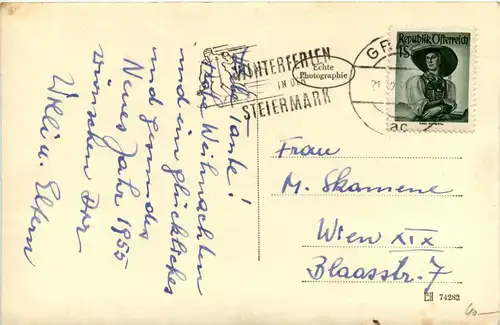 Liebe Tante!
Frohe Weihnachten
und ein glückliches
und gesundes
Neues Jahr 1955
wünschen Dir
Willi u. Eltern
WINTERFERIEN
IN DER
STEIERMARK
Echte
Photographie
Republik Österreich
1S
Frau
M. Skamene
Wien XIX
Blaasstr. 7
74282